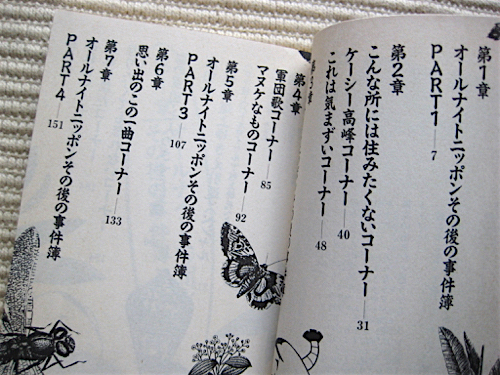 第1章
オールナイトニッポンその後の事件簿
PART1――7
第2章
こんな所には住みたくないコーナー――31
ケーシー高峰コーナー――40
これは気まずいコーナー――48
第3章
第4章
軍団歌コーナー――85
マヌケなものコーナー――92
第5章
オールナイトニッポンその後の事件簿
PART3――107
第6章
思い出のこの一曲コーナー――133
第7章
オールナイトニッポンその後の事件簿
PART4――151